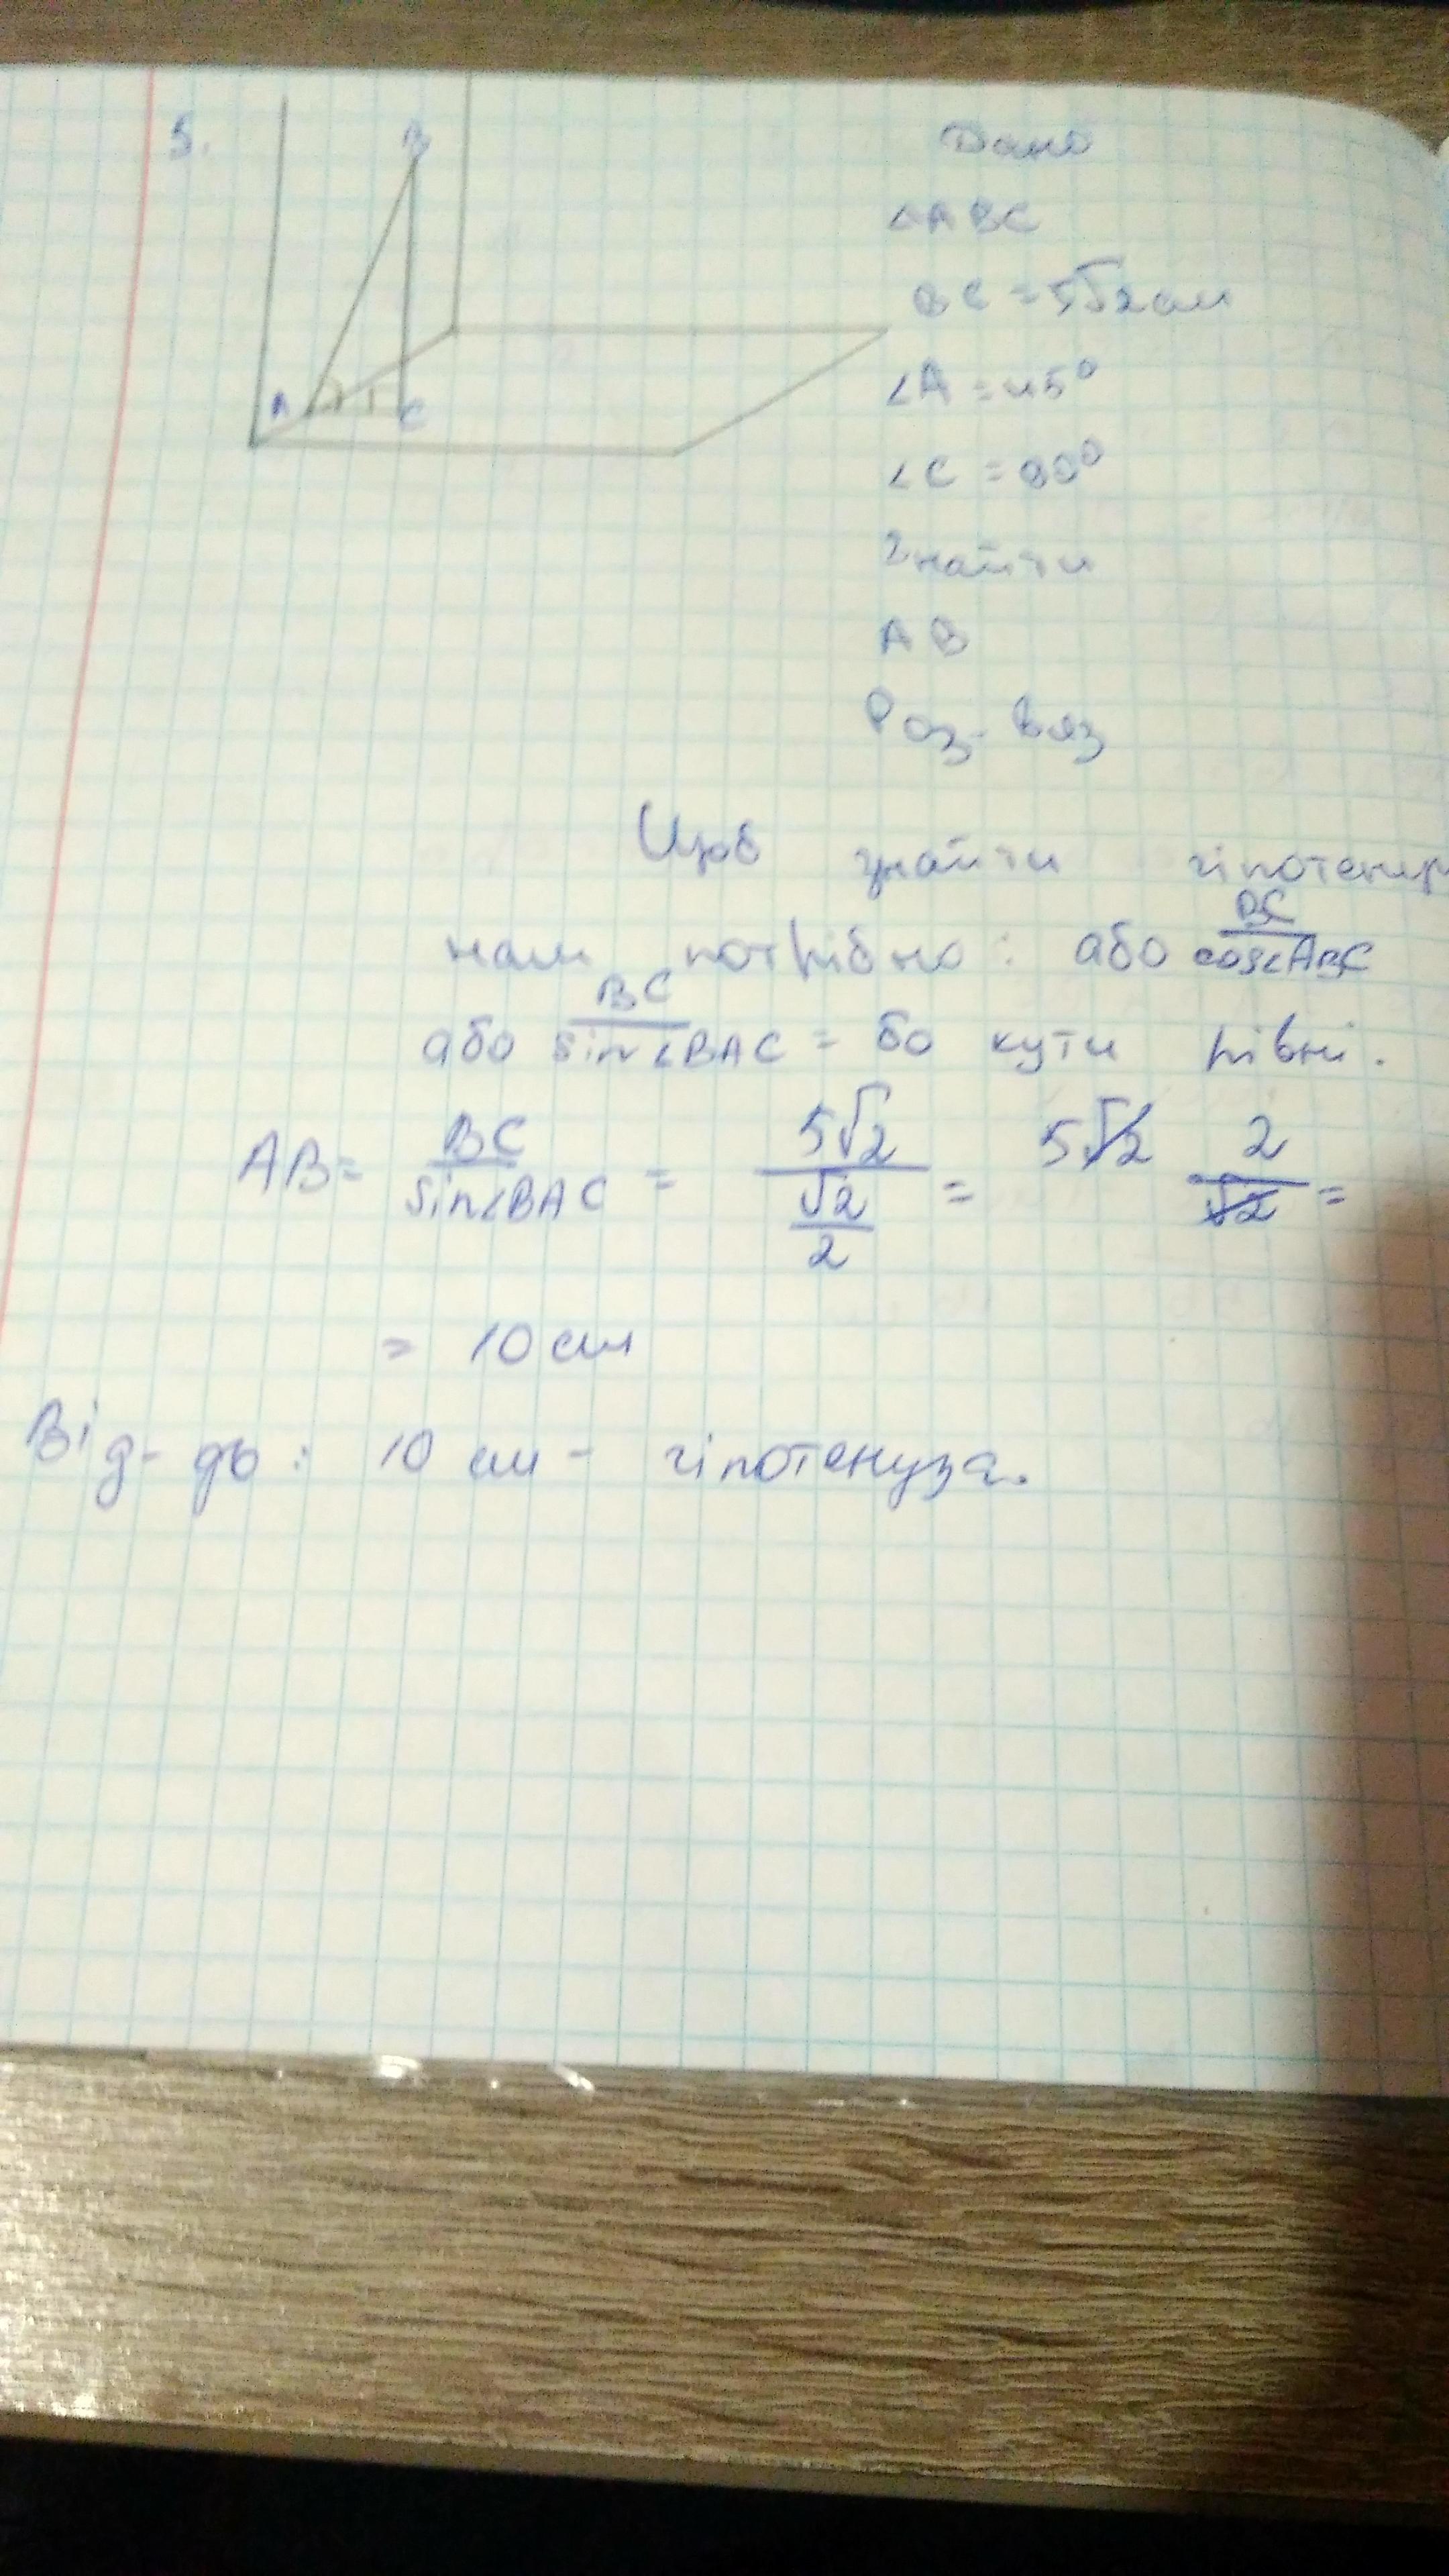 5.
B
A
C
Дано
△ABC
BC = 5√2 см
∠A = 45°
∠C = 90°
Знайти
AB
Роз-вяз
Щоб знайти
нам потрібно: або BC/cos∠ABC
або BC/sin∠BAC = бо кути рівні.
AB = BC/sin∠BAC = 5√2/(√2/2) = 5√2 2/√2 =
= 10 см
Від-дь: 10 см - гіпотенуза.